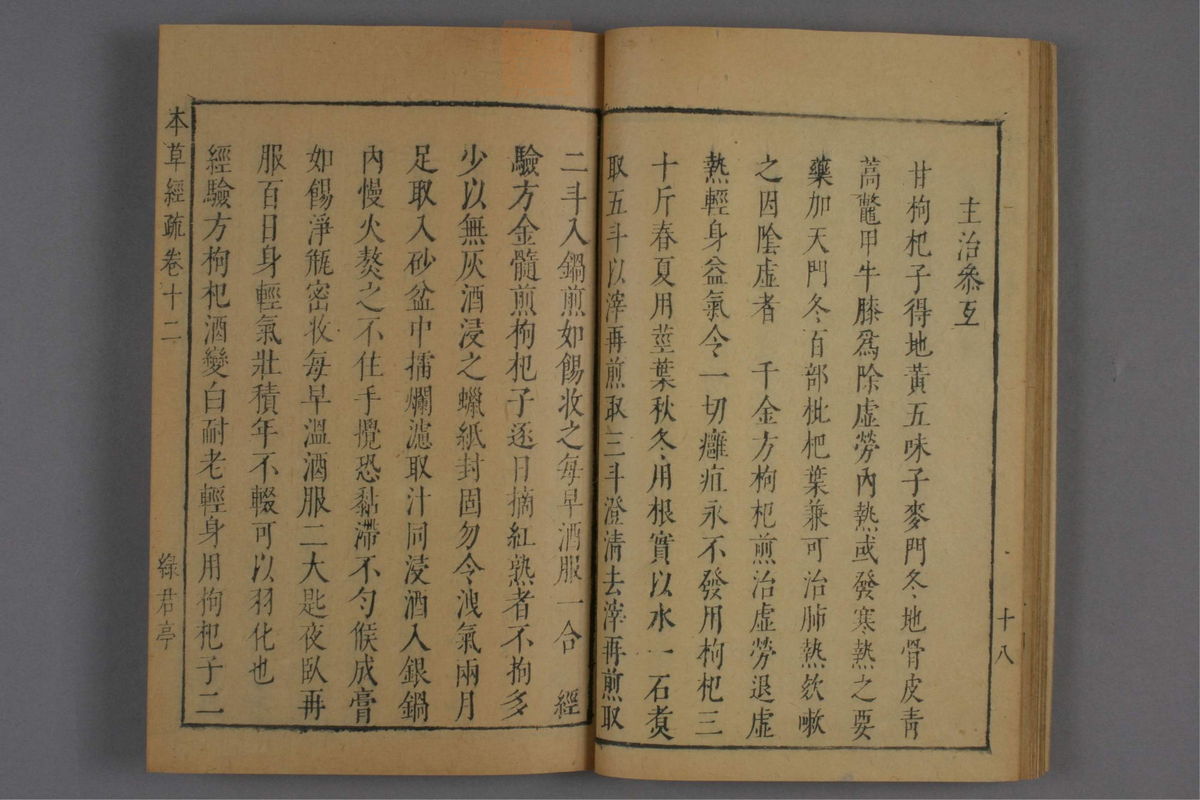 十八
主治叅互
甘枸杞子得地黃五味子麥門冬地骨皮青
蒿鼈甲牛膝爲除虛勞內熱或發寒熱之要
藥加天門冬百部枇杷葉兼可治肺熱欬嗽
之因陰虛者　千金方枸杞煎治虛勞退虛
熱輕身益氣令一切癰疽永不發用枸杞三
十斤春夏用莖葉秋冬用根實以水一石煑
取五斗以滓再煎取三斗澄清去滓再煎取
二斗入鍋煎如餳收之每早酒服一合　經
驗方金髓煎枸杞子逐日摘紅熟者不拘多
少以無灰酒浸之蠟紙封固勿令洩氣兩月
足取入砂盆中擂爛濾取汁同浸酒入銀鍋
內慢火熬之不住手攪恐黏滯不勻候成膏
如餳淨甁密收每早溫酒服二大匙夜臥再
服百日身輕氣壯積年不輟可以羽化也
經驗方枸杞酒變白耐老輕身用枸杞子二
本草經疏卷十二
綠君亭